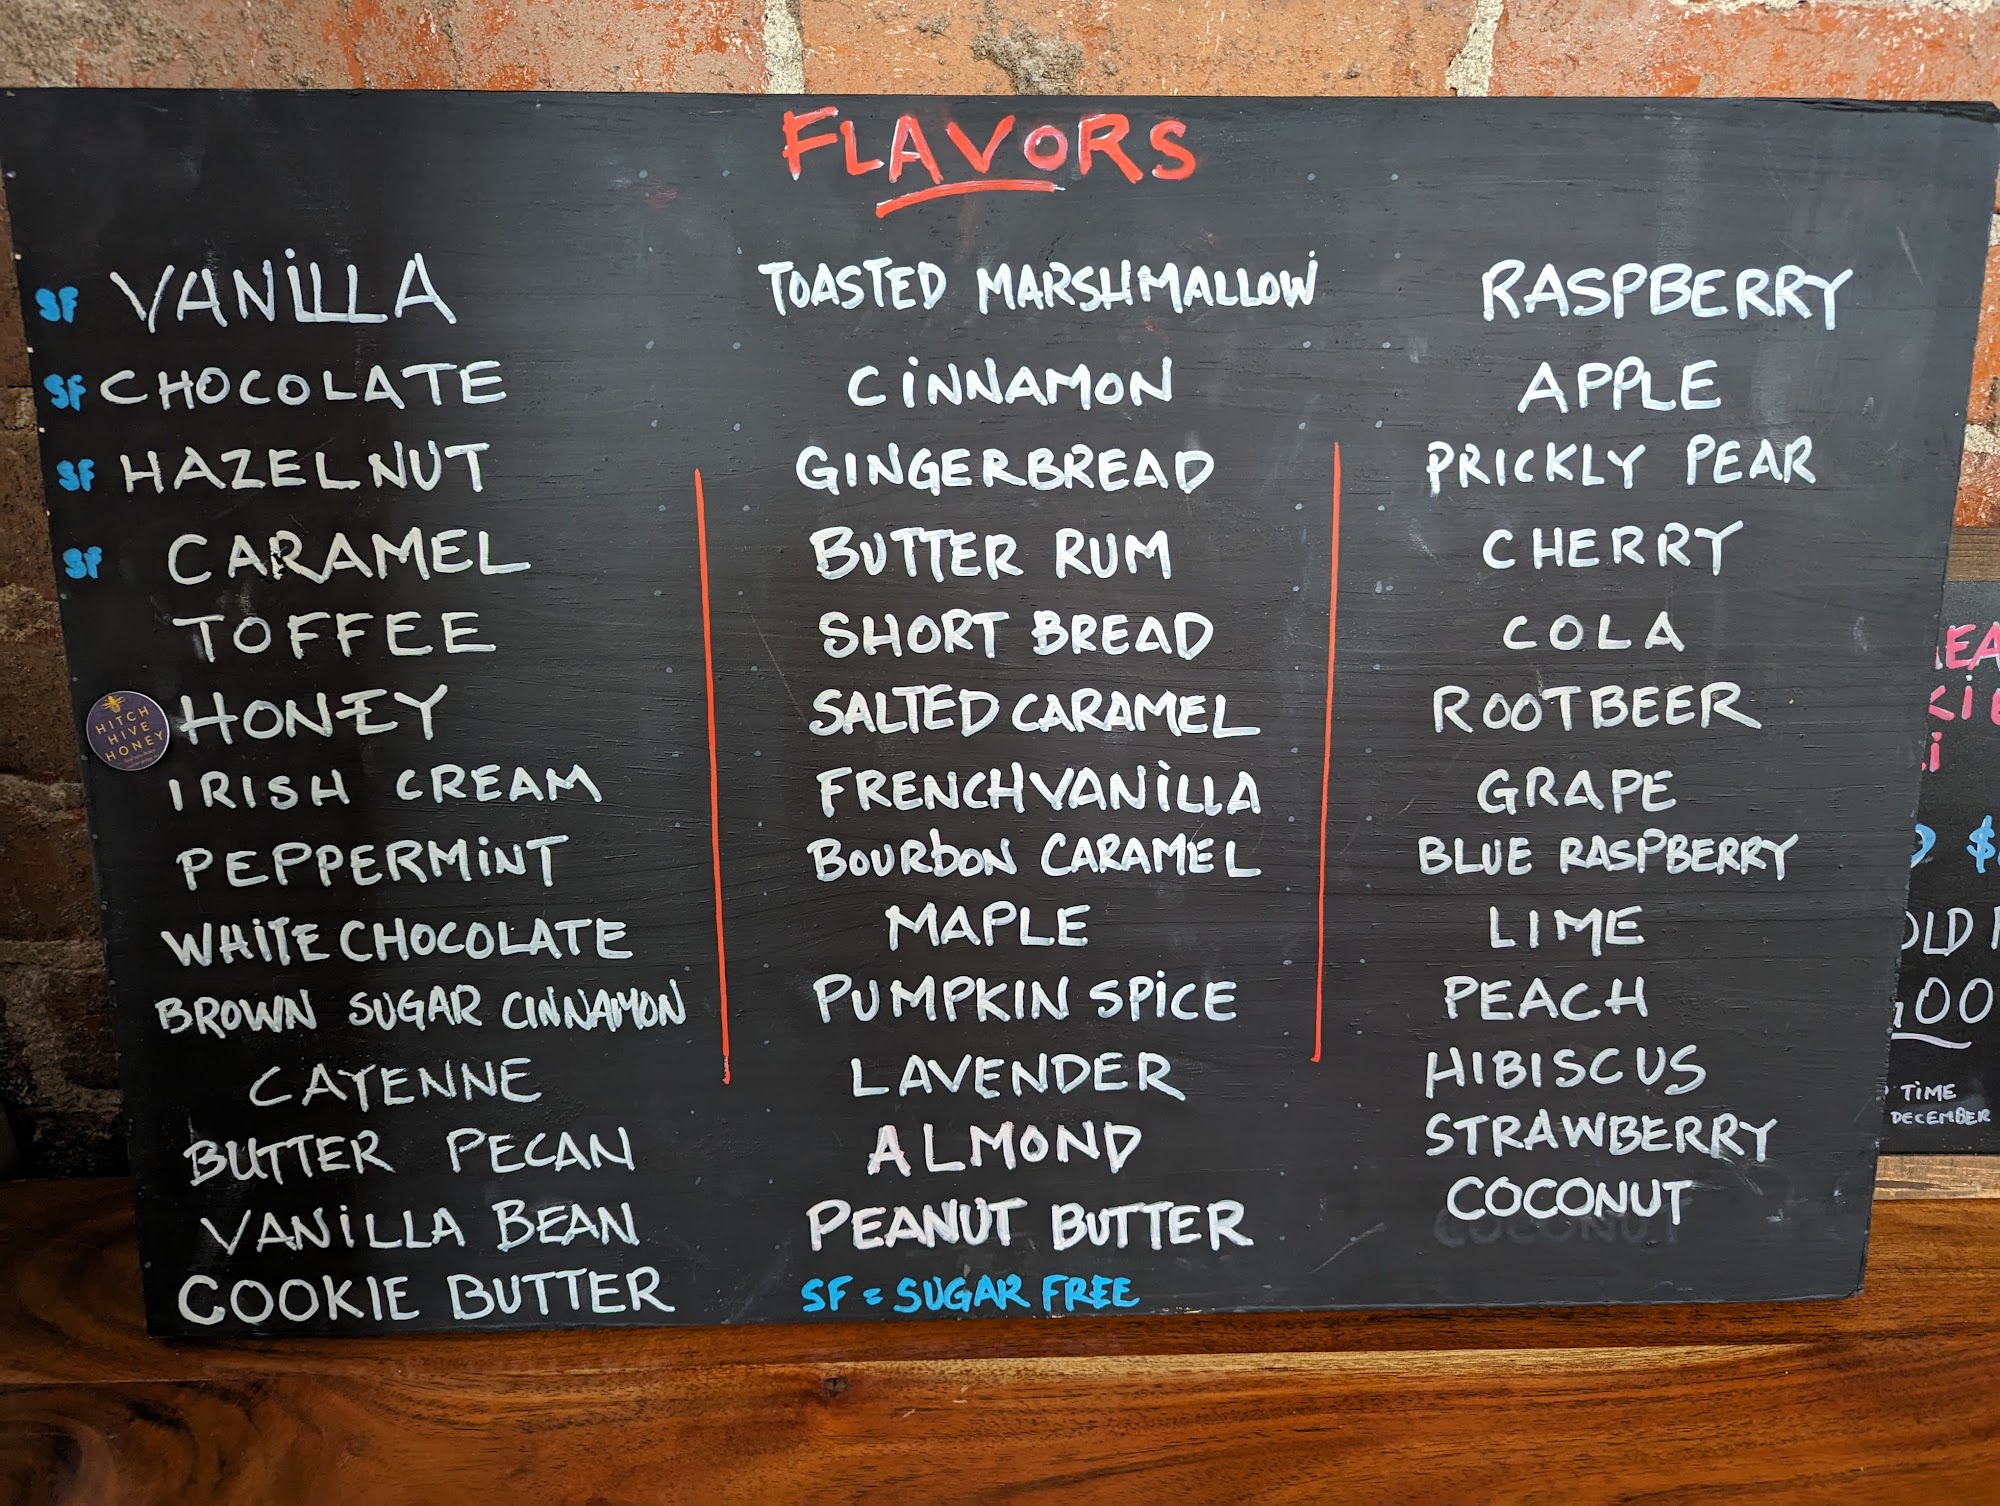 FLAVORS
SF VANILLA
SF CHOCOLATE
SF HAZELNUT
SF CARAMEL
TOFFEE
HITCH
HIVE
HONEY
HONEY
IRISH CREAM
PEPPERMINT
WHITE CHOCOLATE
BROWN SUGAR CINNAMON
CAYENNE
BUTTER PECAN
VANILLA BEAN
COOKIE BUTTER
TOASTED MARSHMALLOW
CINNAMON
GINGERBREAD
BUTTER RUM
SHORT BREAD
SALTED CARAMEL
FRENCH VANILLA
BOURBON CARAMEL
MAPLE
PUMPKIN SPICE
LAVENDER
ALMOND
PEANUT BUTTER
SF = SUGAR FREE
RASPBERRY
APPLE
PRICKLY PEAR
CHERRY
COLA
ROOTBEER
GRAPE
BLUE RASPBERRY
LIME
PEACH
HIBISCUS
STRAWBERRY
COCONUT
COCONUT
TIME
DECEMBER